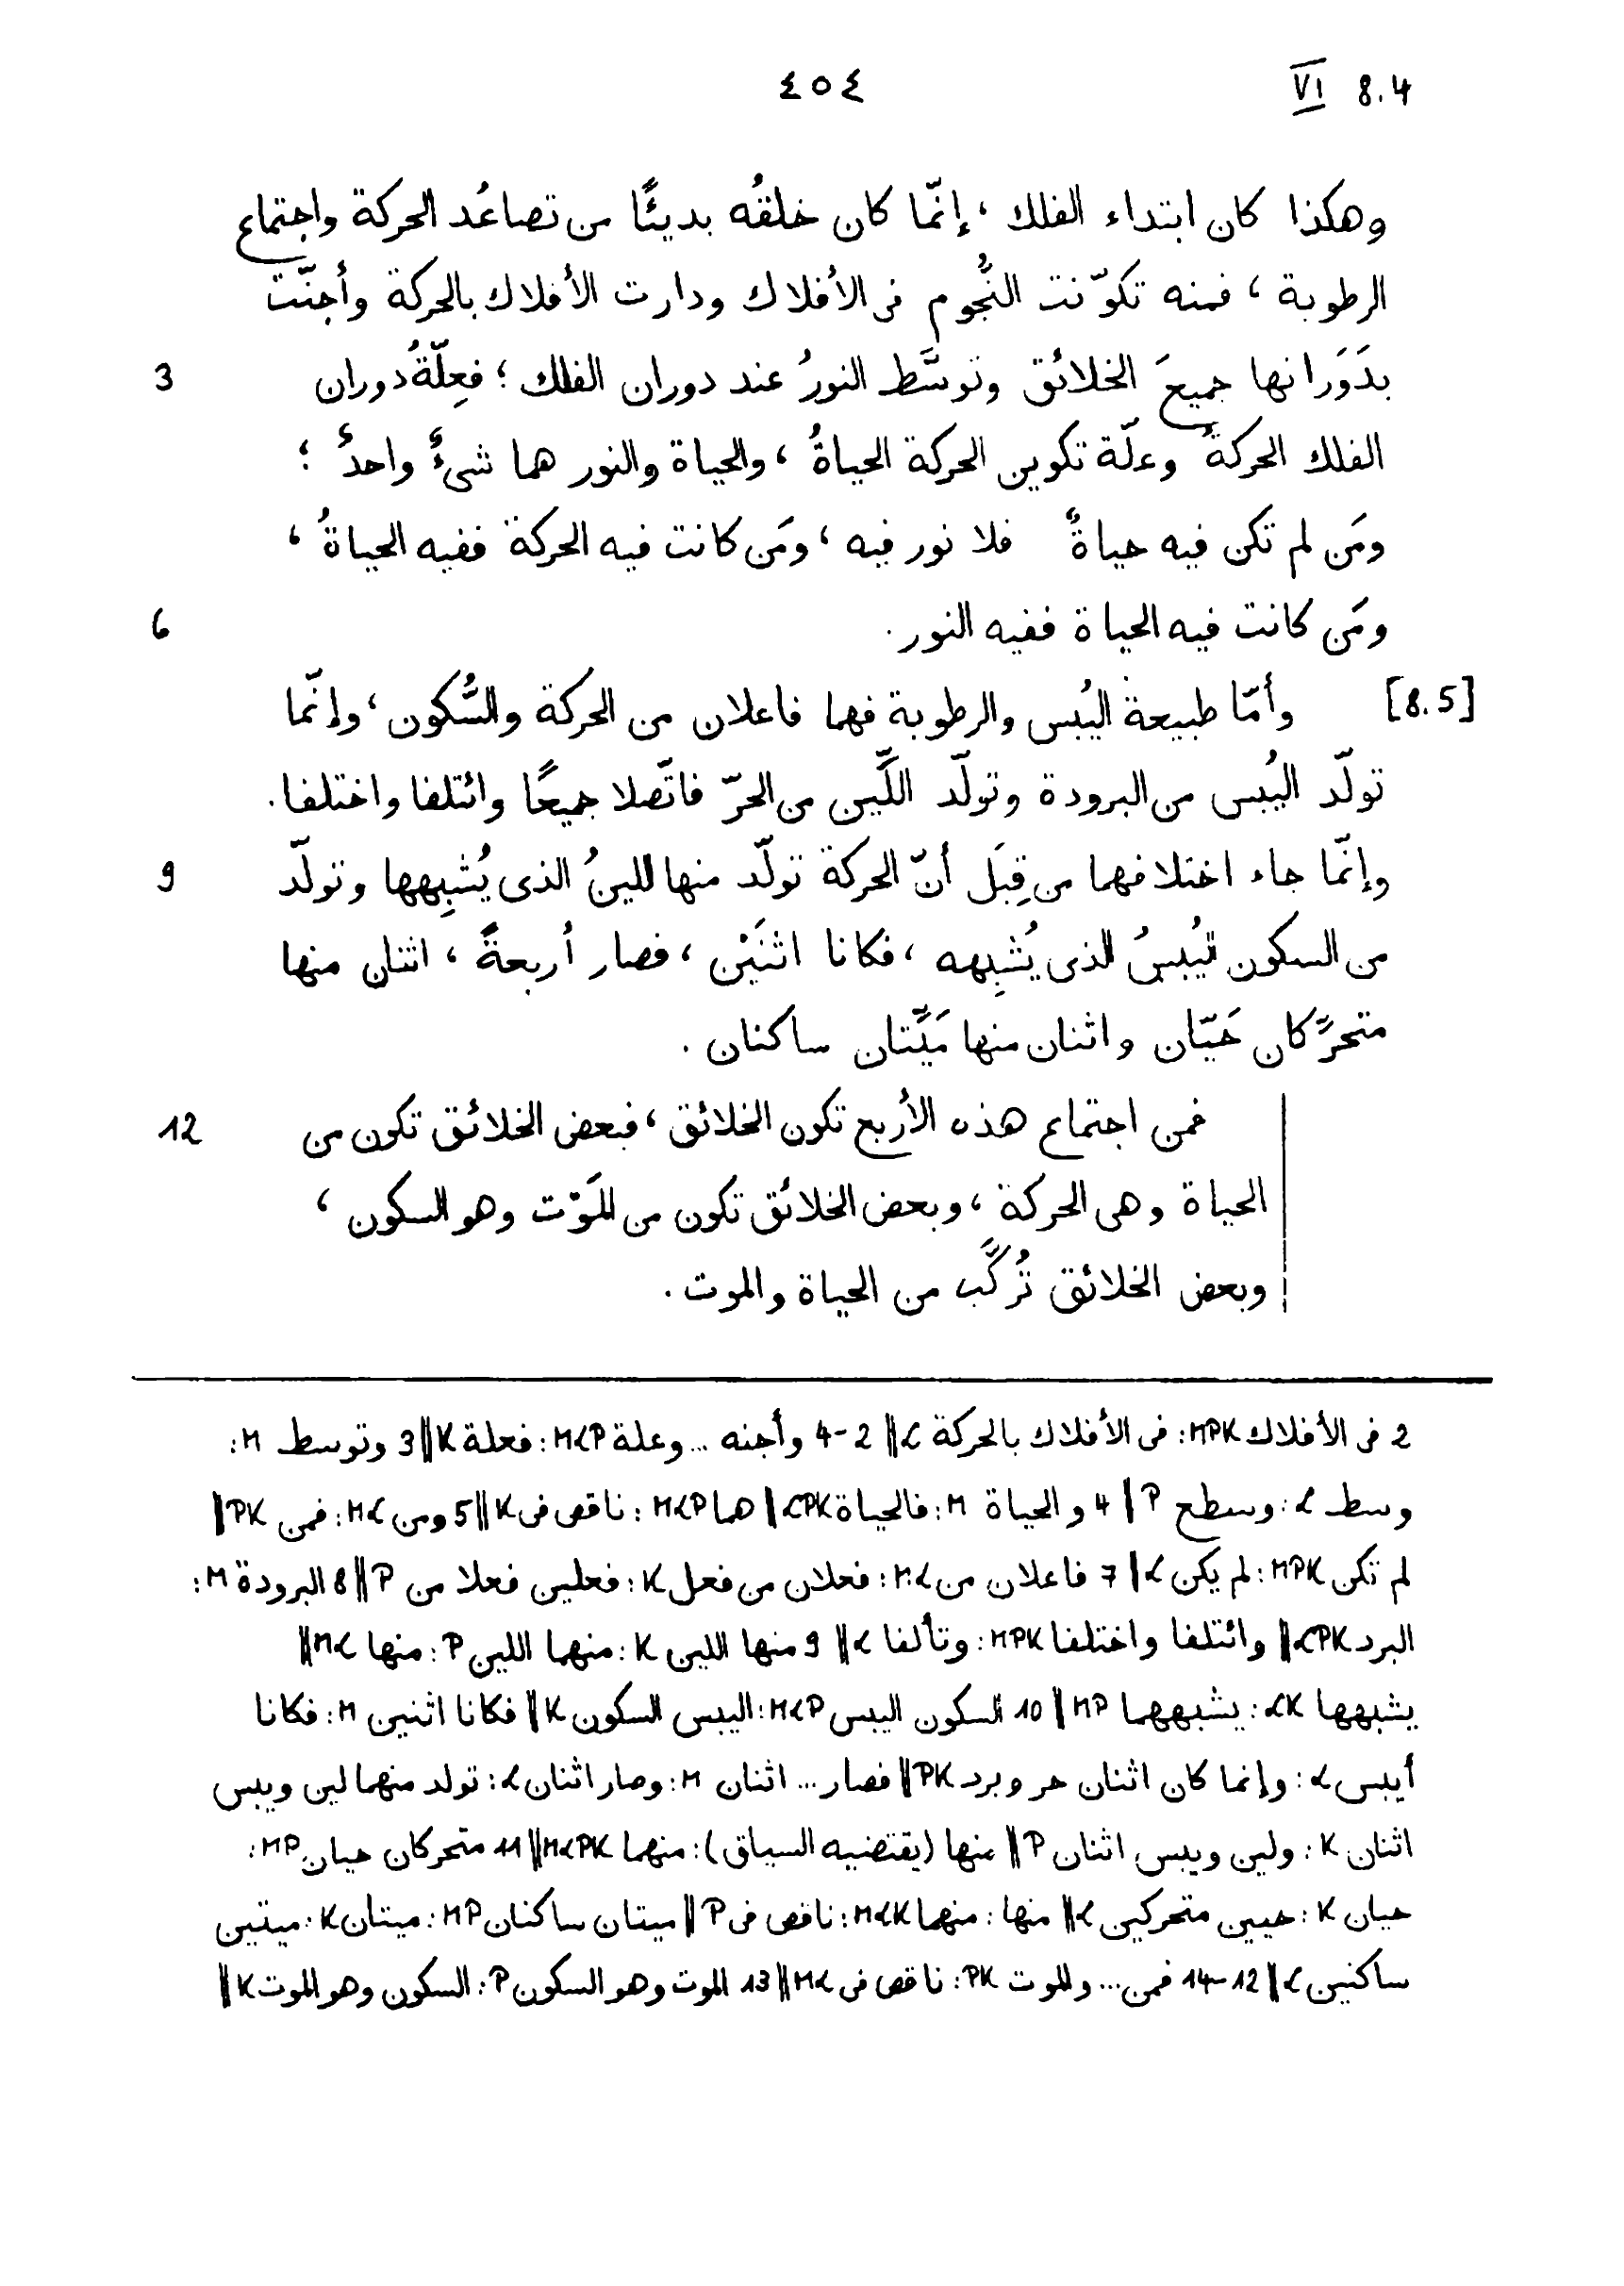 VI 8.4 ٤٥٤
وهكذا كان ابتداء الفلك ، إنّما كان خلقُه بديئًا من تصاعُد الحركة واجتماع
الرطوبة ، فمنه تكوّنت النُّجوم فى الأفلاك ودارت الأفلاك بالحركة وأجنّت
3 بدَوَرانها جميعَ الخلائق وتوسَّط النورُ عند دوران الفلك ؛ فعِلّةُ دوران
الفلك الحركةُ وعلّة تكوين الحركة الحياةُ ، والحياة والنور هما شىءٌ واحدٌ ؛
ومَن لم تكن فيه حياةٌ فلا نور فيه ، ومَن كانت فيه الحركة ففيه الحياةُ ،
6 ومَن كانت فيه الحياة ففيه النور .
[8.5] وأمّا طبيعة اليُبس والرطوبة فهما فاعلان من الحركة والسُّكون ، وإنّما
تولّد اليُبس من البرودة وتولّد اللِّين من الحرّ فاتّصلا جميعًا وائتلفا واختلفا .
9 وإنّما جاء اختلافهما من قِبَل أنّ الحركة تولّد منها اللينُ الذى يُشبِهها وتولّد
من السكون اليُبسُ الذى يُشبِهه ، فكانا اثنَيْن ، فصار أربعةً ، اثنان منها
متحرِّكان حَيّان واثنان منها مَيِّتان ساكنان .
12 فمن اجتماع هذه الأربع تكون الخلائق ، فبعض الخلائق تكون من
الحياة وهى الحركة ، وبعض الخلائق تكون من المَوْت وهو السكون ،
وبعض الخلائق تُركَّب من الحياة والموت .
2 فى الأفلاك MPK: فى الأفلاك بالحركة L || 2-4 وأجنه ... وعلة MLP: فعلة K || 3 وتوسط M:
وسط L: وسطع P | 4 والحياة M: فالحياة LPK | هما MLP: ناقص فى K || 5 ومن ML: فمن PK |
لم تكن MPK: لم يكن L || 7 فاعلان من ML: فعلان من فعل K: فعلين فعلا من P || 8 البرودة M:
البرد LPK || وائتلفا واختلفا MPK: وتألفا L || 9 منها اللين K: منهما اللين P: منها ML ||
يشبهها LK: يشبههما MP || 10 السكون اليبس MLP: اليبس السكون K || فكانا اثنين M: فكانا
أيبس L: وإنما كان اثنان حر وبرد PK || فصار ... اثنان M: وصار اثنان L: تولد منهما لين ويبس
اثنان K: ولين ويبس اثنان P || منها (يقتضيه السياق): منهما MLPK || 11 متحركان حيان MP:
حيان K: حيين متحركين L || منها: منهما MLK: ناقص فى P || ميتان ساكنان MP: ميتان K: ميتين
ساكنين L || 12-14 فمن ... والموت PK: ناقص فى ML || 13 الموت وهو السكون P: السكون وهو الموت K ||